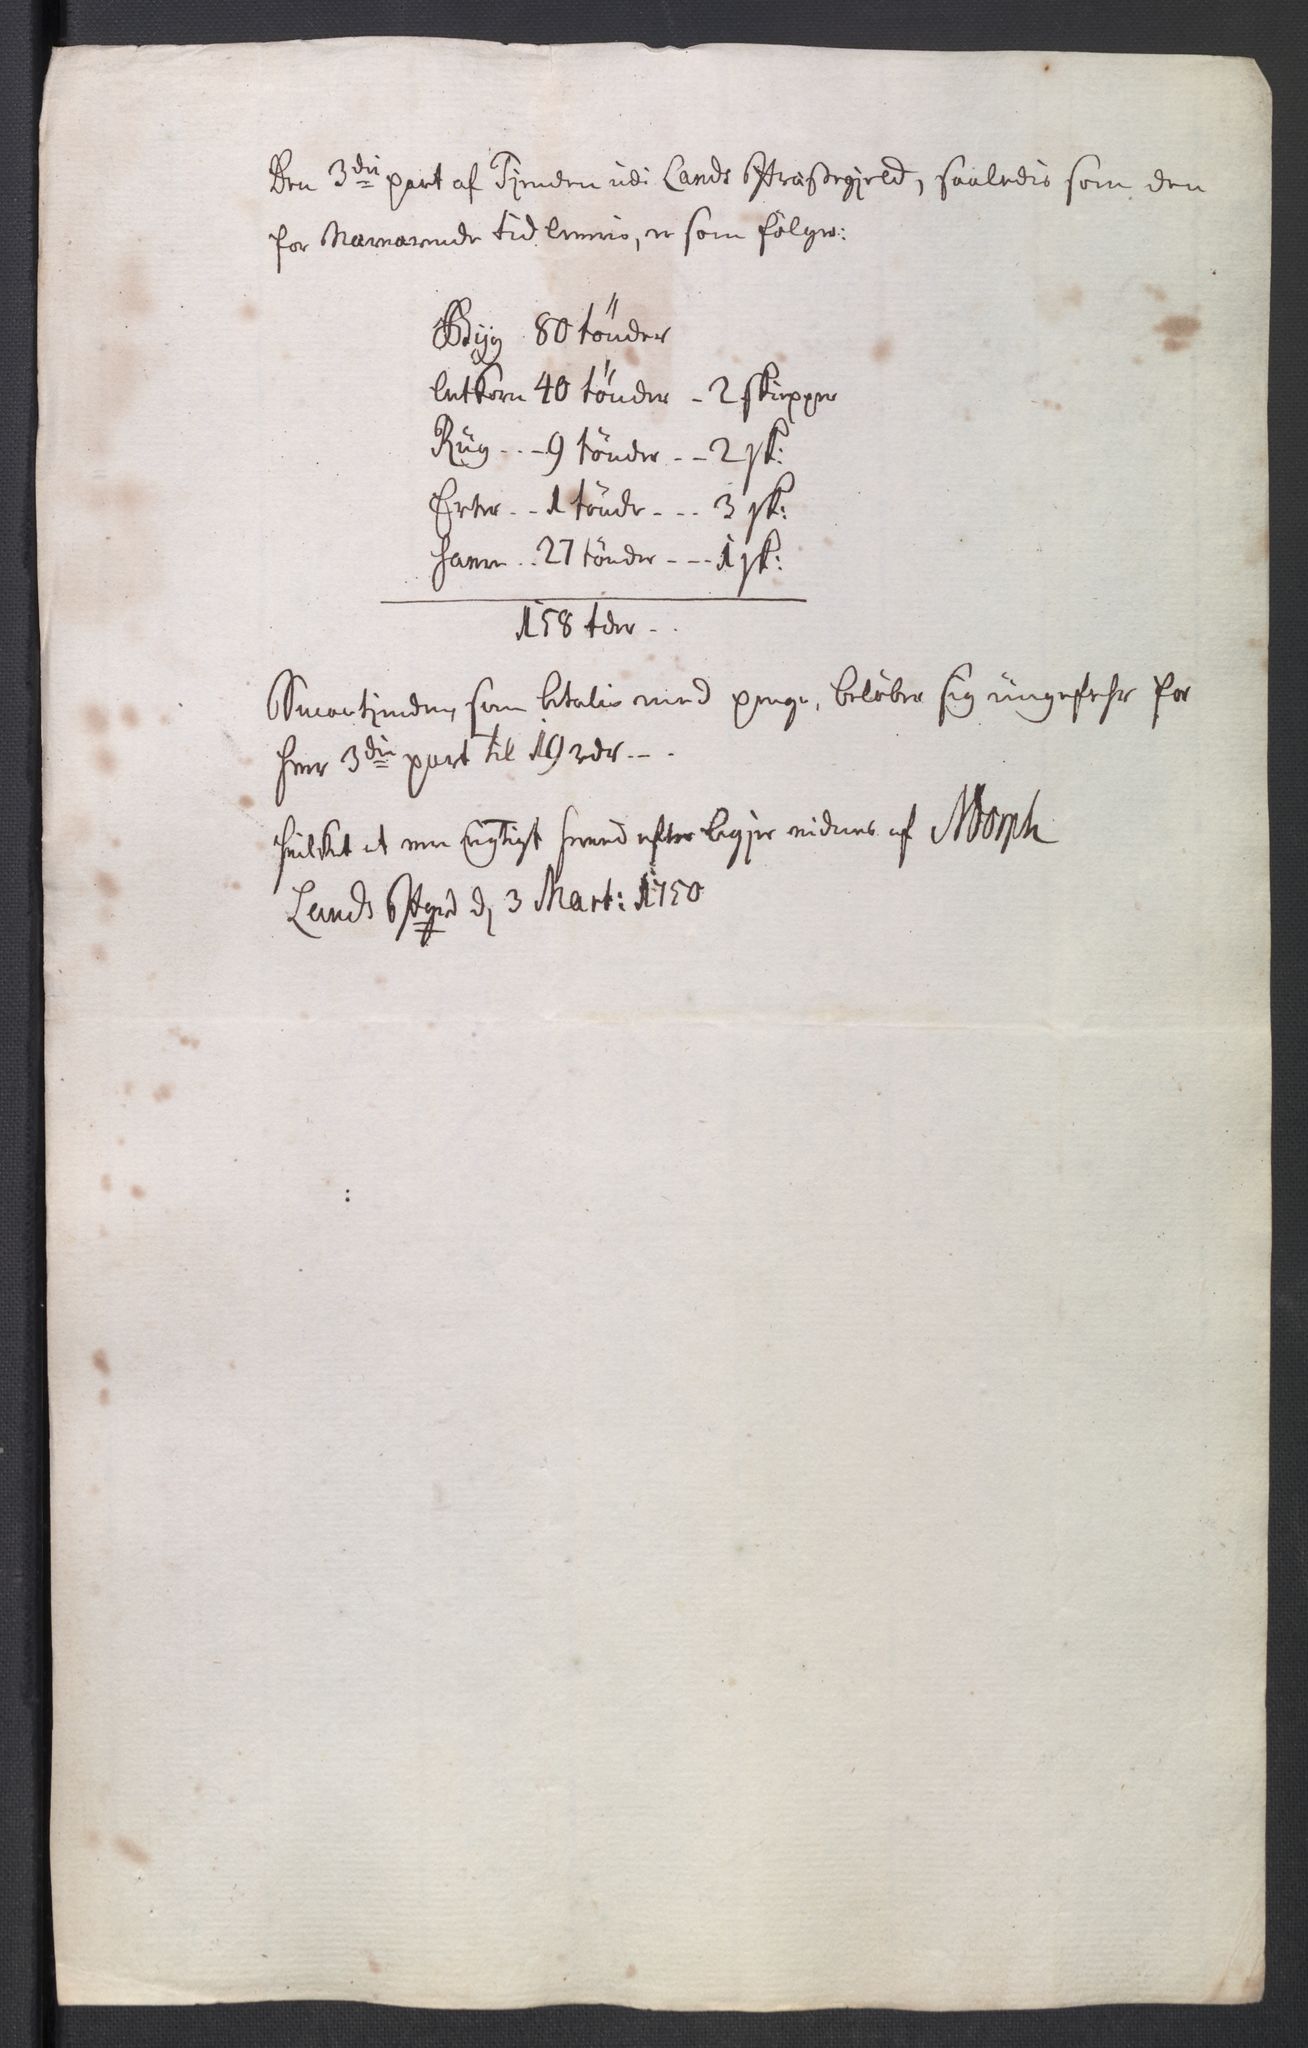 Den 3die part af Tjenden udi Lands Præstegield, saaledis som den
for Nærværende tid leveris, er som følger:
Byg 80 tönder
letkorn 40 tönder - 2 skiepper
Rüg - - - 9 tönder - - 2 sk:
Erter - - 1 tönde - - - 3 sk:
havre - - 27 tönder - - - 1 sk:
158 tdr - -
Smaatjenden, som betalis med penge, belöber sig üngefehr for
hver 3die part til 19 rdr - - -
hvilket at være rigtigt herved efter begjer vidnes af NDorph
Lands Pgrd d, 3 Mart: 1750